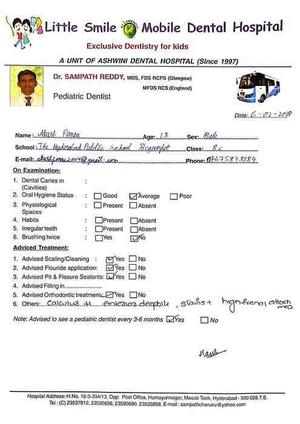 Little Smile Mobile Dental Hospital
Exclusive Dentistry for kids
A UNIT OF ASHWINI DENTAL HOSPITAL (Since 1997)
Dr. SAMPATH REDDY, MDS, FDS RCPS (Glasgow)
MFDS RCS (England)
Pediatric Dentist
Date: 6-02-2018
Name: Akash Age: 13 Sex: Male
School: The Hyderabad Public School Begumpet Class:
E-mail: Phone:
On Examination:
1. Dental Caries in : (Cavities)
2. Oral Hygiene Status : Good Average Poor
3. Physiological Spaces : Present Absent
4. Habits : Present Absent
5. Irregular teeth : Present Absent
6. Brushing twice : Yes No
Adviced Treatment:
1. Advised Scaling/Cleaning : Yes No
2. Advised Flouride application: Yes No
3. Advised Pit & Fissure Sealants: Yes No
4. Advised Filling in
5. Advised Orthodontic treatment: Yes No
6. Others: Calculus + deepbite, stains + high frenal attachment
Note: Advised to see a pediatric dentist every 3-6 months Yes No
Hospital Address:-H.No. 10-3-304/13, Opp: Post Office, Humayunnagar, Masab Tank, Hyderabad - 500 028 T.S.
Tel: (C) 23537612, 23535656, 23590690, 23535858, E-mail : sampathcheruku@yahoo.com